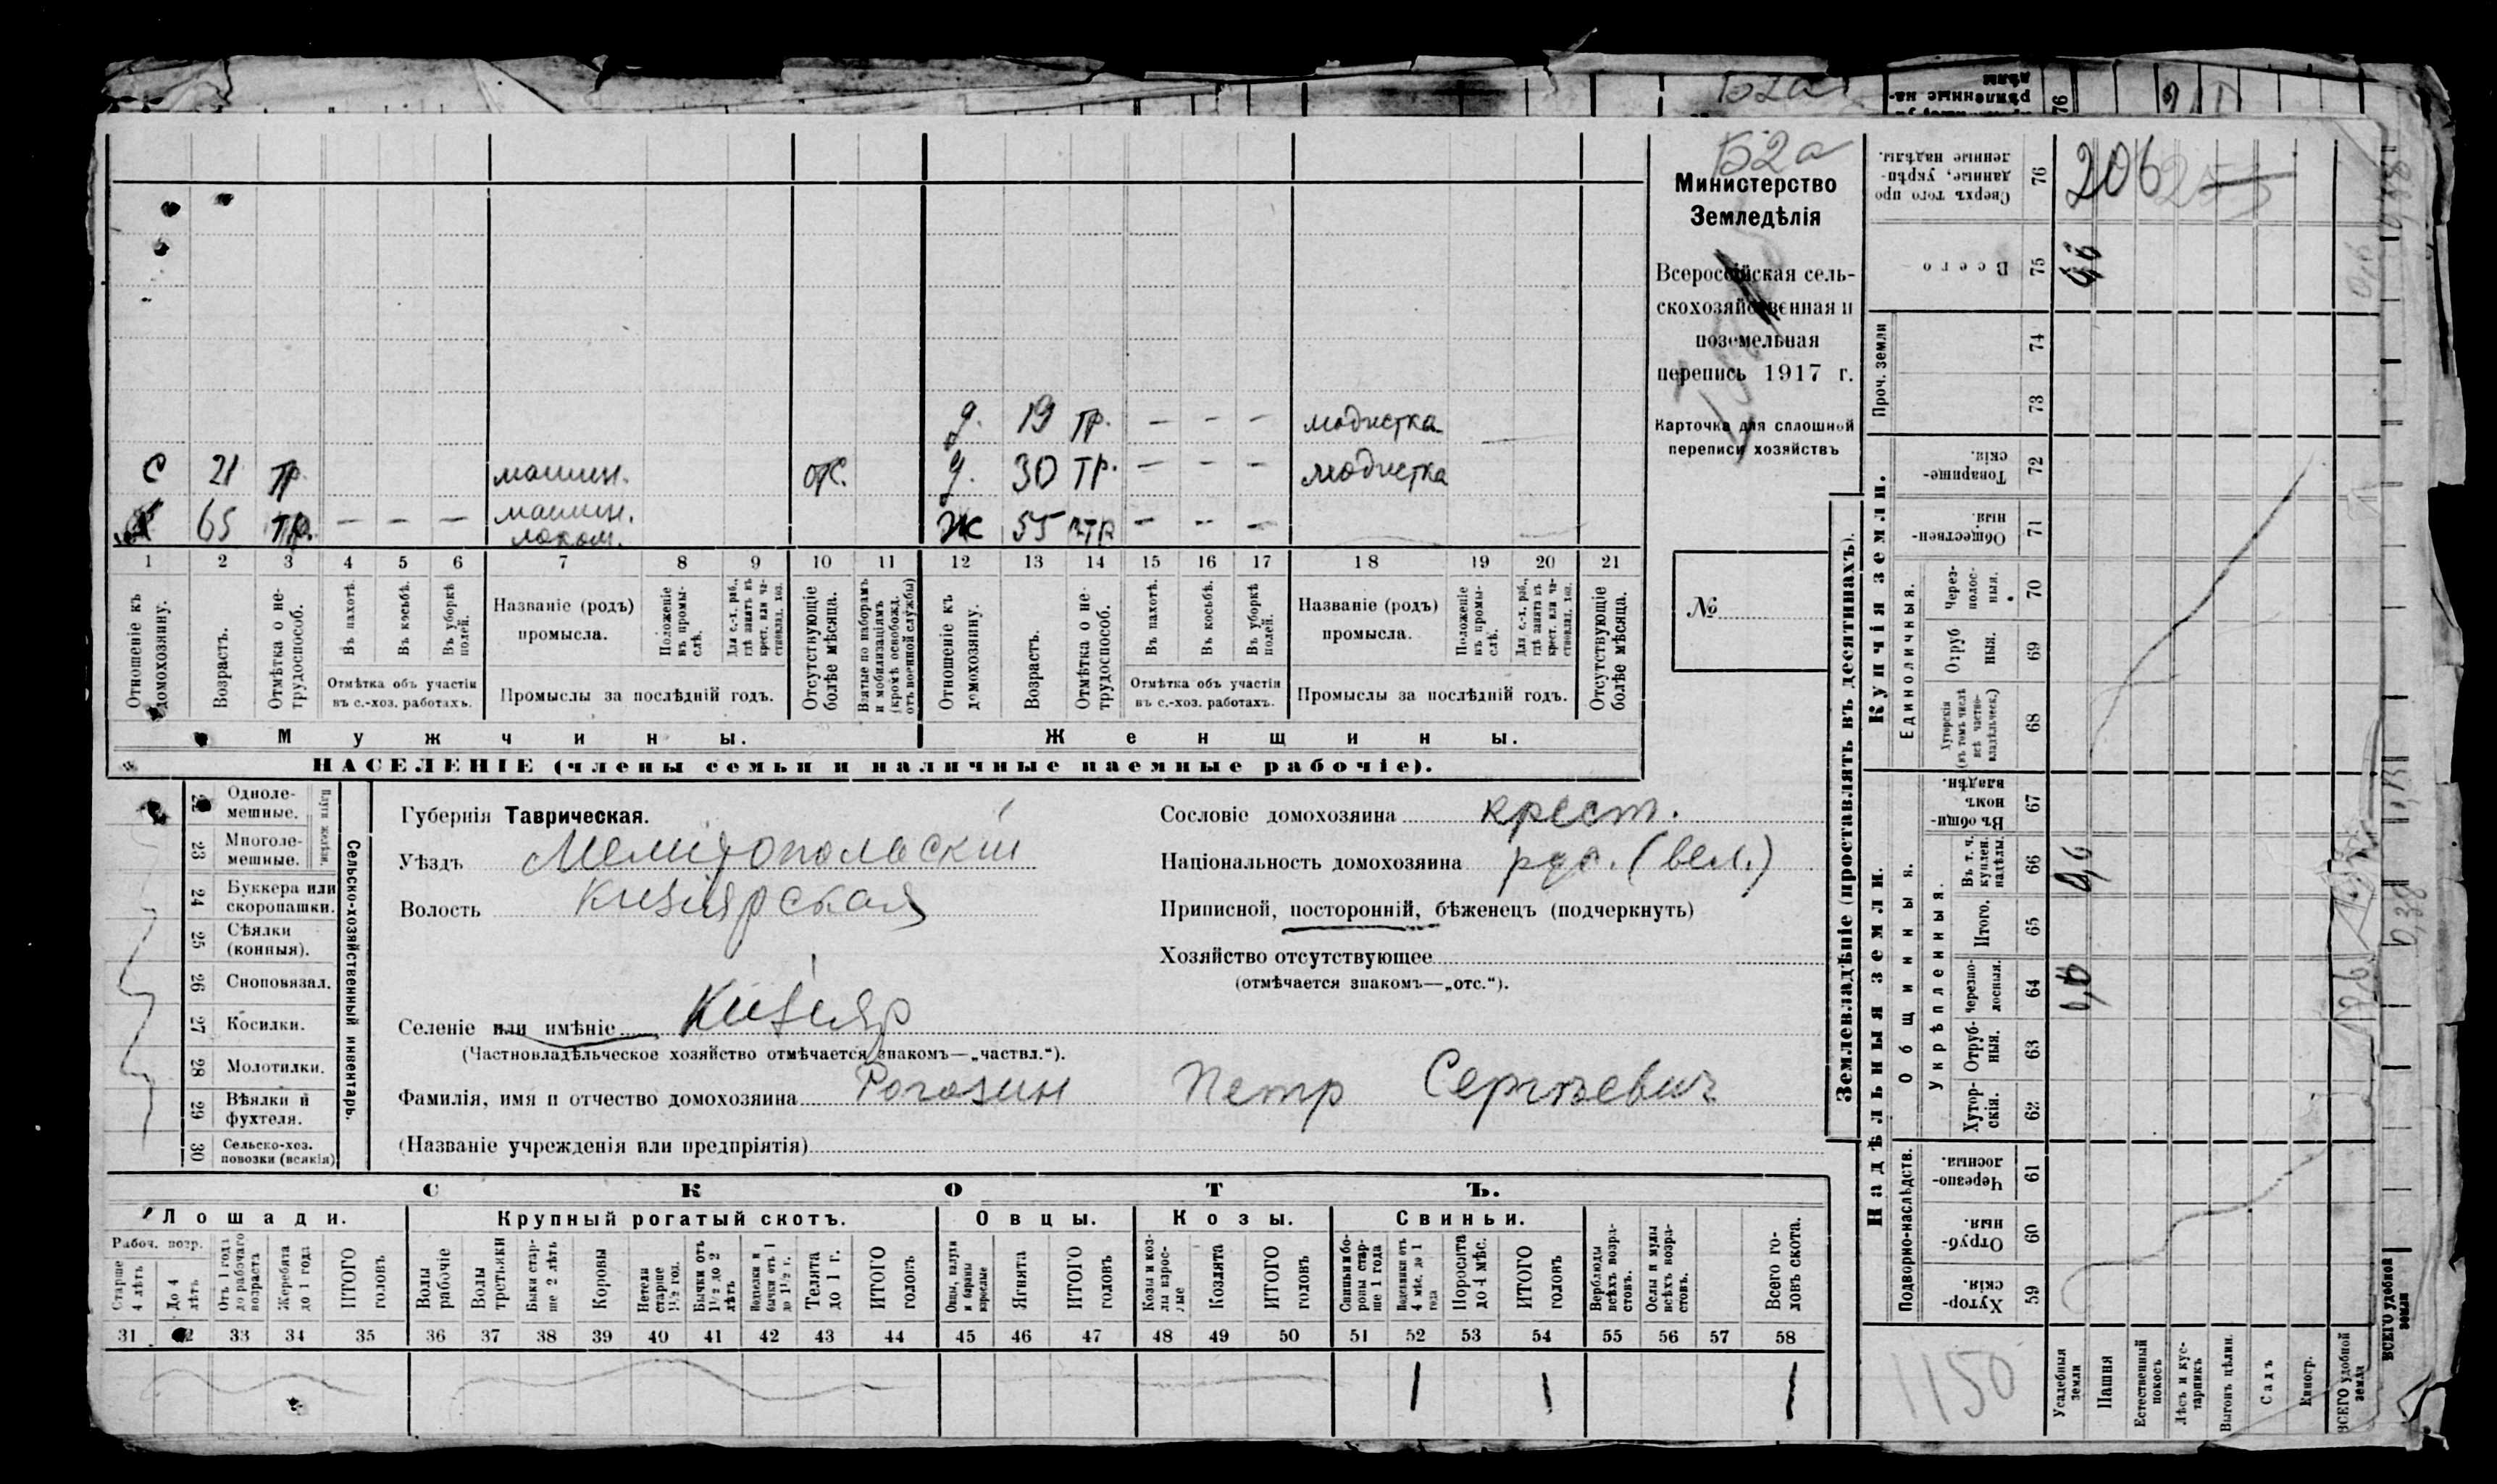 Б2а
Б2а
Министерство
Земледѣлія
Всероссійская сель-
скохозяйственная и
поземельная
перепись 1917 г.
Карточка для сплошной
переписи хозяйствъ
№
д. 19 тр. — - — модистка
с 21 тр. машин. отс. д. 30 тр. — - - модистка
65 тр. — - — машин. ж 55 нтр — - -
локом.
1 2 3 4 5 6 7 8 9 10 11 12 13 14 15 16 17 18 19 20 21
Отношеніе къ домохозяину.
Возрастъ.
Отмѣтка о не-трудоспособ.
Въ пахотѣ.
Въ косьбѣ.
Въ уборкѣ полей.
Отмѣтка объ участіи
въ с.-хоз. работахъ.
Названіе (родъ)
промысла.
Положеніе въ промы-слѣ.
Для с.-х. раб., гдѣ занятъ въ крест. или ча-стновлад. хоз.
Промыслы за послѣдній годъ.
Отсутствующіе болѣе мѣсяца.
Взятые по наборамъ и мобилизаціямъ (кромѣ освобожд. отъ военной службы)
Отношеніе къ домохозяину.
Возрастъ.
Отмѣтка о не-трудоспособ.
Въ пахотѣ.
Въ косьбѣ.
Въ уборкѣ полей.
Отмѣтка объ участіи
въ с.-хоз. работахъ.
Названіе (родъ)
промысла.
Положеніе въ промы-слѣ.
Для с.-х. раб., гдѣ занята въ крест. или ча-стновлад. хоз.
Промыслы за послѣдній годъ.
Отсутствующіе болѣе мѣсяца.
Мужчины. Женщины.
НАСЕЛЕНІЕ (члены семьи и наличные наемные рабочіе).
Сельско-хозяйственный инвентарь.
Плуги желѣзн.
22 Одноле-мешные.
23 Многоле-мешные.
24 Буккера или скоропашки.
25 Сѣялки (конныя).
26 Сноповязал.
27 Косилки.
28 Молотилки.
29 Вѣялки и фухтеля.
30 Сельско-хоз. повозки (всякія)
Губернія Таврическая.
Уѣздъ Мелитопольскій
Волость Кизіярская
Селеніе или имѣніе Кизіяр
(Частновладѣльческое хозяйство отмѣчается знакомъ—„частвл.“).
Фамилія, имя и отчество домохозяина Рогозин Петр Сергѣевич
(Названіе учрежденія или предпріятія)
Сословіе домохозяина крест.
Національность домохозяина рус. (вел.)
Приписной, посторонній, бѣженецъ (подчеркнуть)
Хозяйство отсутствующее
(отмѣчается знакомъ—„отс.“).
СКОТЪ.
Лошади. Крупный рогатый скотъ. Овцы. Козы. Свиньи.
Рабоч. возр.
Старше 4 лѣтъ
До 4 лѣтъ
Отъ 1 года до рабочаго возраста
Жеребята до 1 года
ИТОГО головъ
Волы рабочіе
Волы третьяки
Быки стар-ше 2 лѣтъ
Коровы
Нетели старше 1½ год.
Бычки отъ 1½ до 2 лѣтъ
Подтелки и бычки отъ 1 до 1½ г.
Телята до 1 г.
ИТОГО головъ
Овцы, валухи и бараны взрослые
Ягнята
ИТОГО головъ
Козы и коз-лы взрос-лые
Козлята
ИТОГО головъ
Свиньи и бо-ровы стар-ше 1 года
Подсвинки отъ 4 мѣс. до 1 года
Поросята до 4 мѣс.
ИТОГО головъ
Верблюды всѣхъ возра-стовъ.
Ослы и мулы всѣхъ возра-стовъ.
Всего го-ловъ скота.
31 33 34 35 36 37 38 39 40 41 42 43 44 45 46 47 48 49 50 51 52 53 54 55 56 57 58
1 1 1
Землевладѣніе (проставлять въ десятинахъ).
Надѣльныя земли. Купчія земли.
Сверхъ того про-данные, укрѣп-ленные надѣлы. 76 206
Всего 75
Проч. земли 74
73
Товарище-скія. 72
Обществен-ныя. 71
Единоличныя.
Через-полос-ныя. 70
Отруб-ныя. 69
Хуторскія (въ томъ числѣ всѣ частно-владѣльческ.) 68
Общинныя.
Въ общи-номъ владѣн. 67
Укрѣпленныя.
Въ т. ч. куплен. надѣлы. 66
Итого. 65
Черезпо-лосныя. 64
Отруб-ныя. 63
Хутор-скія. 62
Подворно-наслѣдств.
Черезпо-лосныя. 61
Отруб-ныя. 60
Хутор-скія. 59
1150
Усадебныя земли
Пашня
Естественный покосъ
Лѣсъ и кус-тарникъ
Выгонъ цѣлин.
Садъ
Виногр.
ВСЕГО удобной земли
ВСЕГО удобной земли